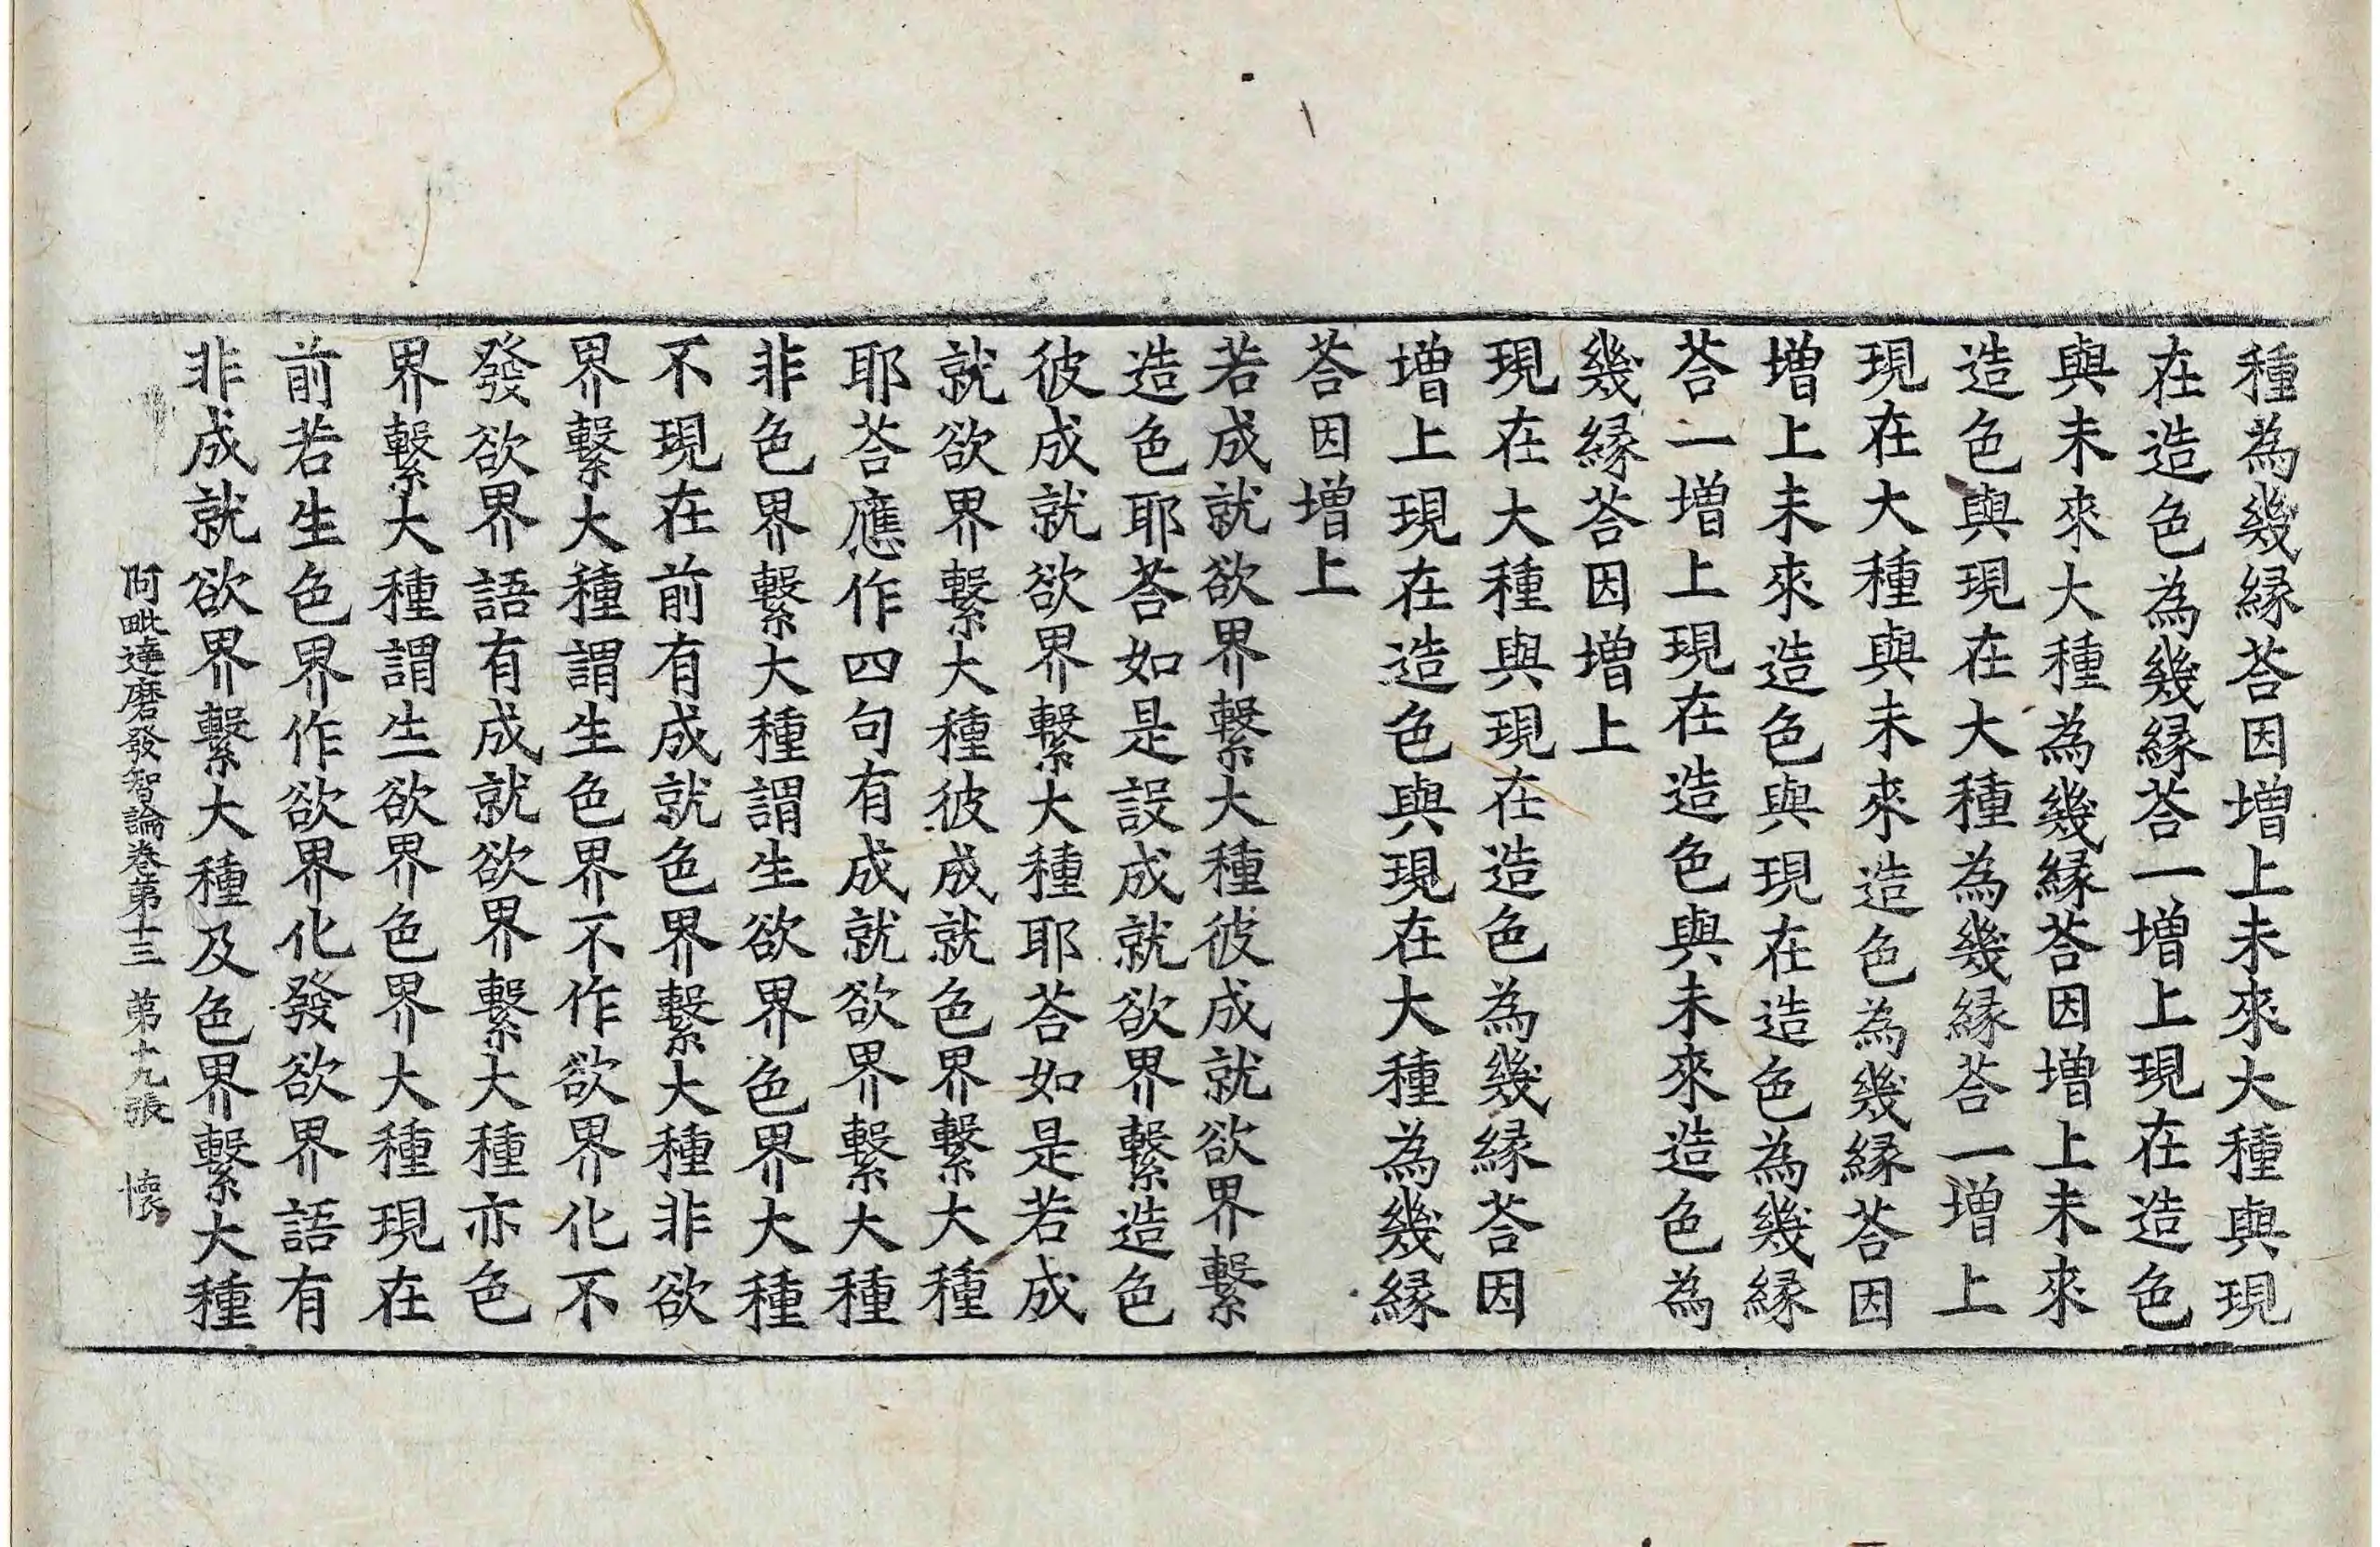 種為幾縁荅因增上未來大種與現
在造色為幾縁荅一增上現在造色
與未來大種為幾縁荅因增上未來
造色與現在大種為幾縁荅一增上
現在大種與未來造色為幾縁荅因
增上未來造色與現在造色為幾縁
荅一增上現在造色與未來造色為
幾縁荅因增上
現在大種與現在造色為幾縁荅因
增上現在造色與現在大種為幾縁
荅因增上
若成就欲界繫大種彼成就欲界繫
造色耶荅如是設成就欲界繫造色
彼成就欲界繫大種耶荅如是若成
就欲界繫大種彼成就色界繫大種
耶荅應作四句有成就欲界繫大種
非色界繫大種謂生欲界色界大種
不現在前有成就色界繫大種非欲
界繫大種謂生色界不作欲界化不
發欲界語有成就欲界繫大種亦色
界繫大種謂生欲界色界大種現在
前若生色界作欲界化發欲界語有
非成就欲界繫大種及色界繫大種
阿毗達磨發智論卷第十三 第十九張 懷